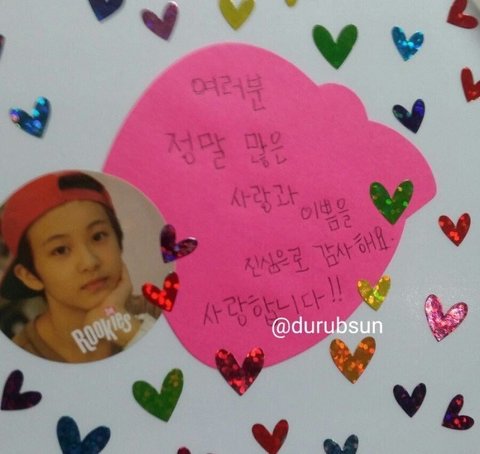 여러분
정말 많은
사랑과 이쁨을
진심으로 감사해요.
사랑합니다!!
@durubsun
ROOKIES